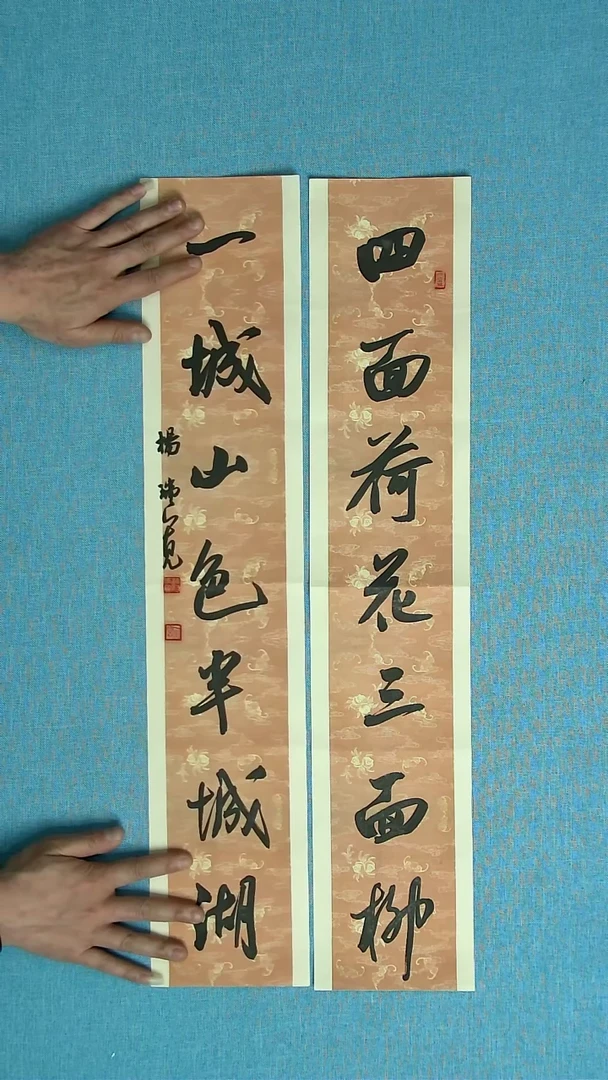 四面荷花三面柳
一城山色半城湖
楊瑞